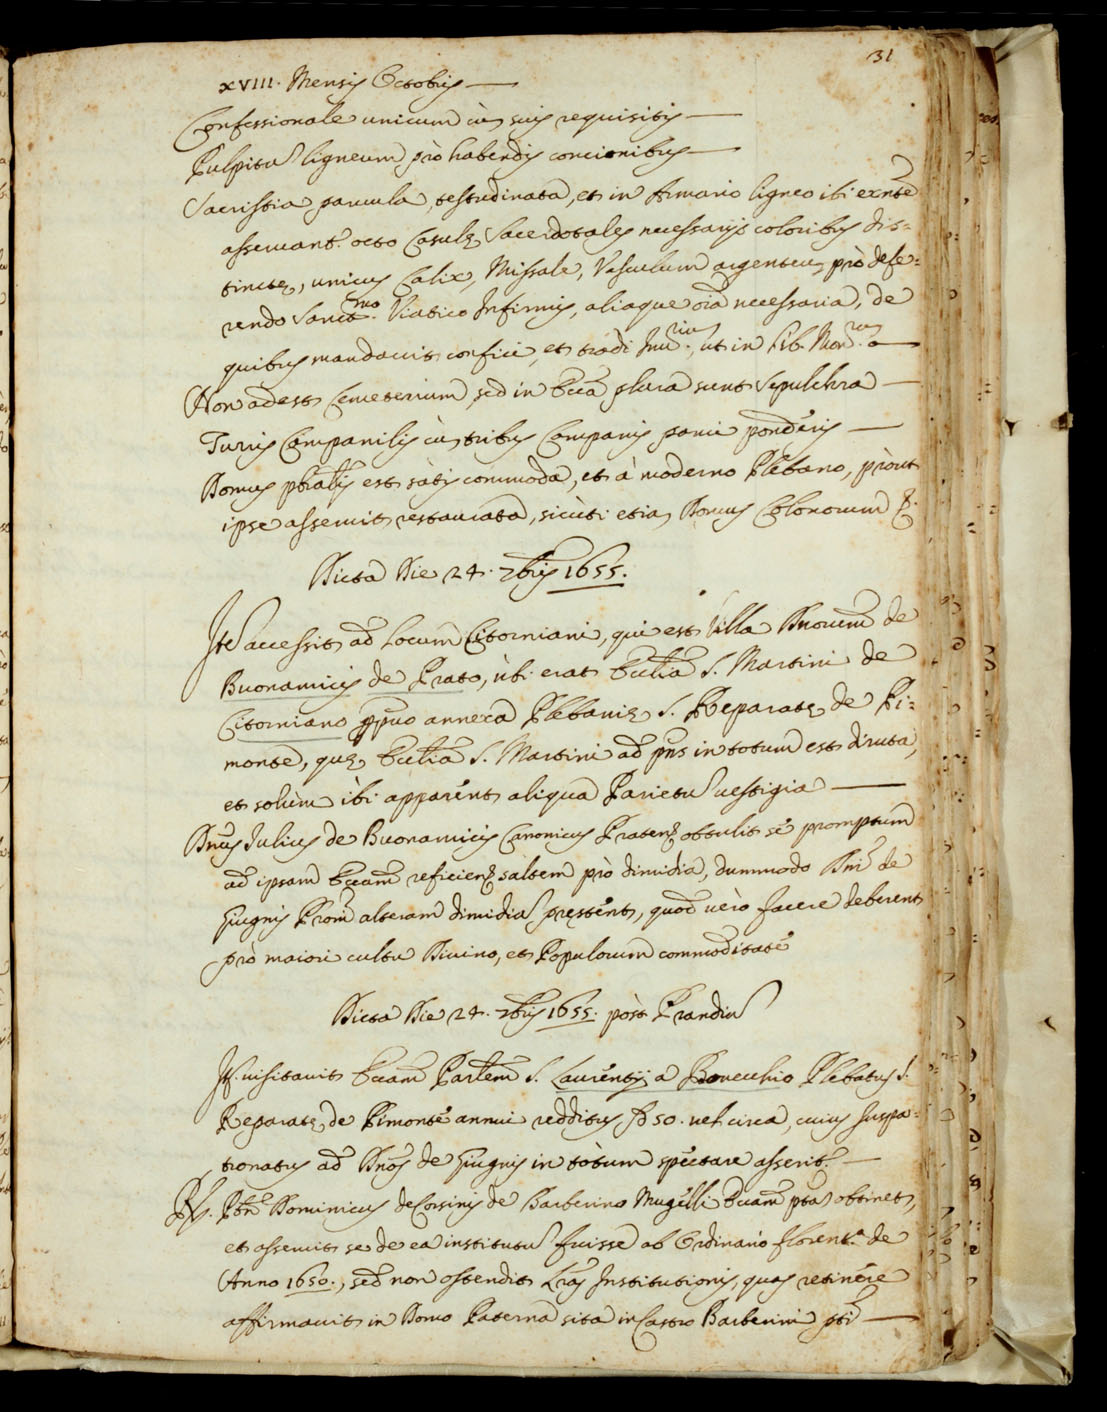 31
XVIII. Mensis Octobris —
Confessionale unicum cũ suis requisitis —
Pulpitũ ligneum prò habendis concionibus —
Sacristia parvula, testudinata, et in Armario ligneo ibi exñte
asservant.r octo Casulę Sacerdotales necessarijs coloribus dis=
tinctę, unicus Calix, Missale, Vasculum argenteũ prò defe=
rendo Sanct.mo Viatico Infirmis, aliaque oĩa necessaria, de
quibus mandavit confici, et tradi Inv.rium, ut in Lib.
Non adest Cemeterium, sed in Eccã plura sunt Sepulchra —
Turris Campanilis cũ tribus Campanis parvi ponderis —
Domus pbralis est sàtis commoda, et à moderno Plebano, pròut
ipse asseruit restaurata, sicùti etiã Domus Colonorum
Dicta Die 24. 7bris 1655.
Itẽ accessit ad Locum Citorniani, qui est Villa Dnorum de
Buonamicis de Prato, ùbi erat Eccliã S. Martini de
Citorniano ppuo annexa Plebanię S. Reparatę de Pi=
monte, quę Eccliã S. Martini ad pñs in totum est diruta,
et solùm ibi apparent aliqua Parietũ vestigia —
Dñus Julius de Buonamicis Canonicus Pratens obtulit se promptum
ad ipsam Eccam reficiend saltem prò dimidia, dummodo Dñi de
Giugnis Prom alteram dimidiã pręstent, quod verò facere deberent
prò maiori cultu Divino, et Populorum commoditate
Dicta Die 24. 7bris 1655. pòst Prandiũ
It. visitavit Eccam Parlem S. Laurentij a Povecchio Plebatus S.
Reparatę de Pimonte annui redditus 50. vel circa, cuius Juspa=
tronatus ad Dños de Giugnis in tòtum spectare asserit.r —
Pbr Dominicus de Corsinis de Barberino Mugelli Eccam ptã obtinet,
et asseruit se de ea institutũ fuisse ab Ordinario florent.o de
Anno 1650., sed non ostendit Lrãs Institutionis, quas retinere
affirmavit in Domo Paterna sita in Castro Barberini pti —